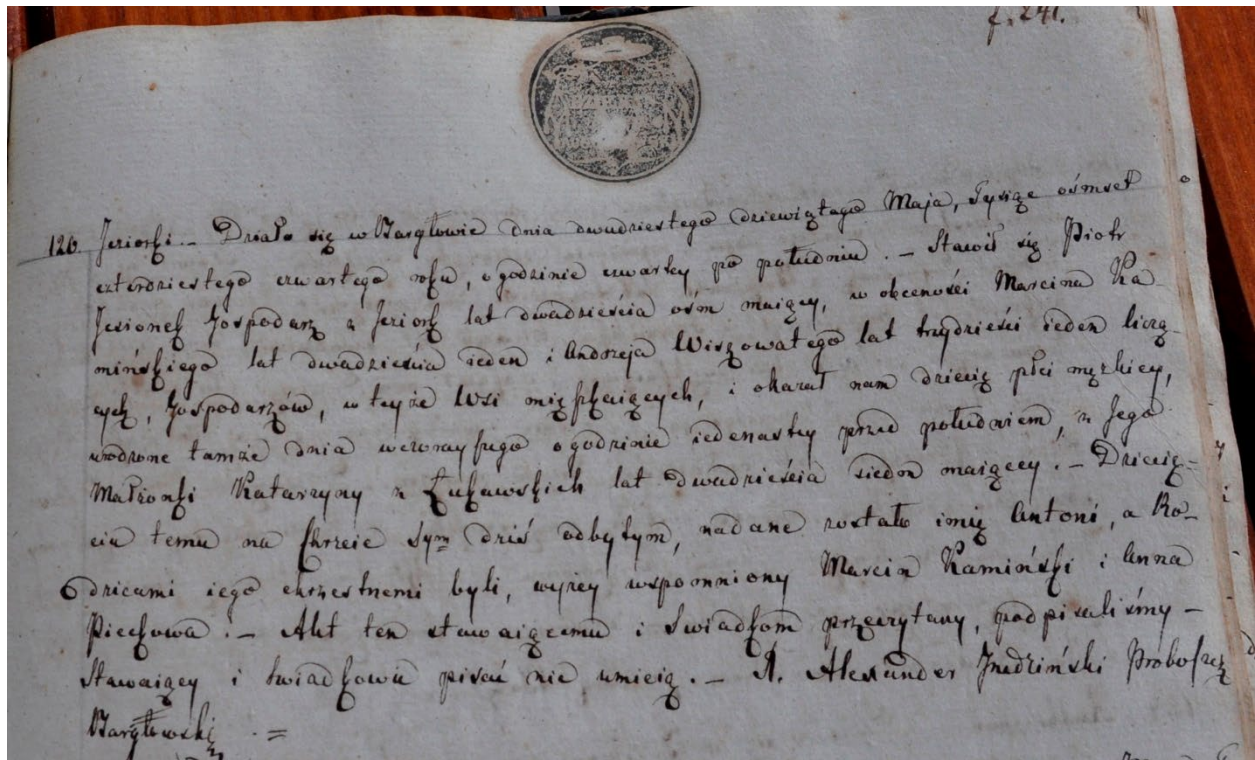 f. 241.
126. Jeziorki. – Działo się w Bargłowie dnia dwudziestego dziewiątego Maja, Tysiąc ośmset
czterdziestego czwartego roku, o godzinie czwartey po południu. – Stawił się Piotr
Jesionek Gospodarz z Jeziork lat dwadzieścia ośm maiący, w obecności Marcina Ka-
mińskiego lat dwadzieścia ieden i Andrzeja Wiszowatego lat trzydzieści ieden liczą-
cych, Gospodarzów, w teyże Wsi mięszkaiących, i okazał nam dziecię płci męzkiey,
urodzone tamże dnia wczorayszego o godzinie iedenastey przed południem, z Jego
Małżonki Katarzyny z Łukawskich lat dwadzieścia siedm maiącey. – Dziecię-
ciu temu na Chrzcie Sym dziś odbytym, nadane zostało imię Antoni, a Ro-
dzicami iego chrzestnemi byli, wyżey wspomniony Marcin Kamiński i Anna
Piechowa. – Akt ten stawaiącemu i Swiadkom przeczytany, podpisaliśmy –
Stawaiący i Swiadkowie pisać nie umieią. – X. Alexander Jnedziński Proboszcz
Bargłowski =